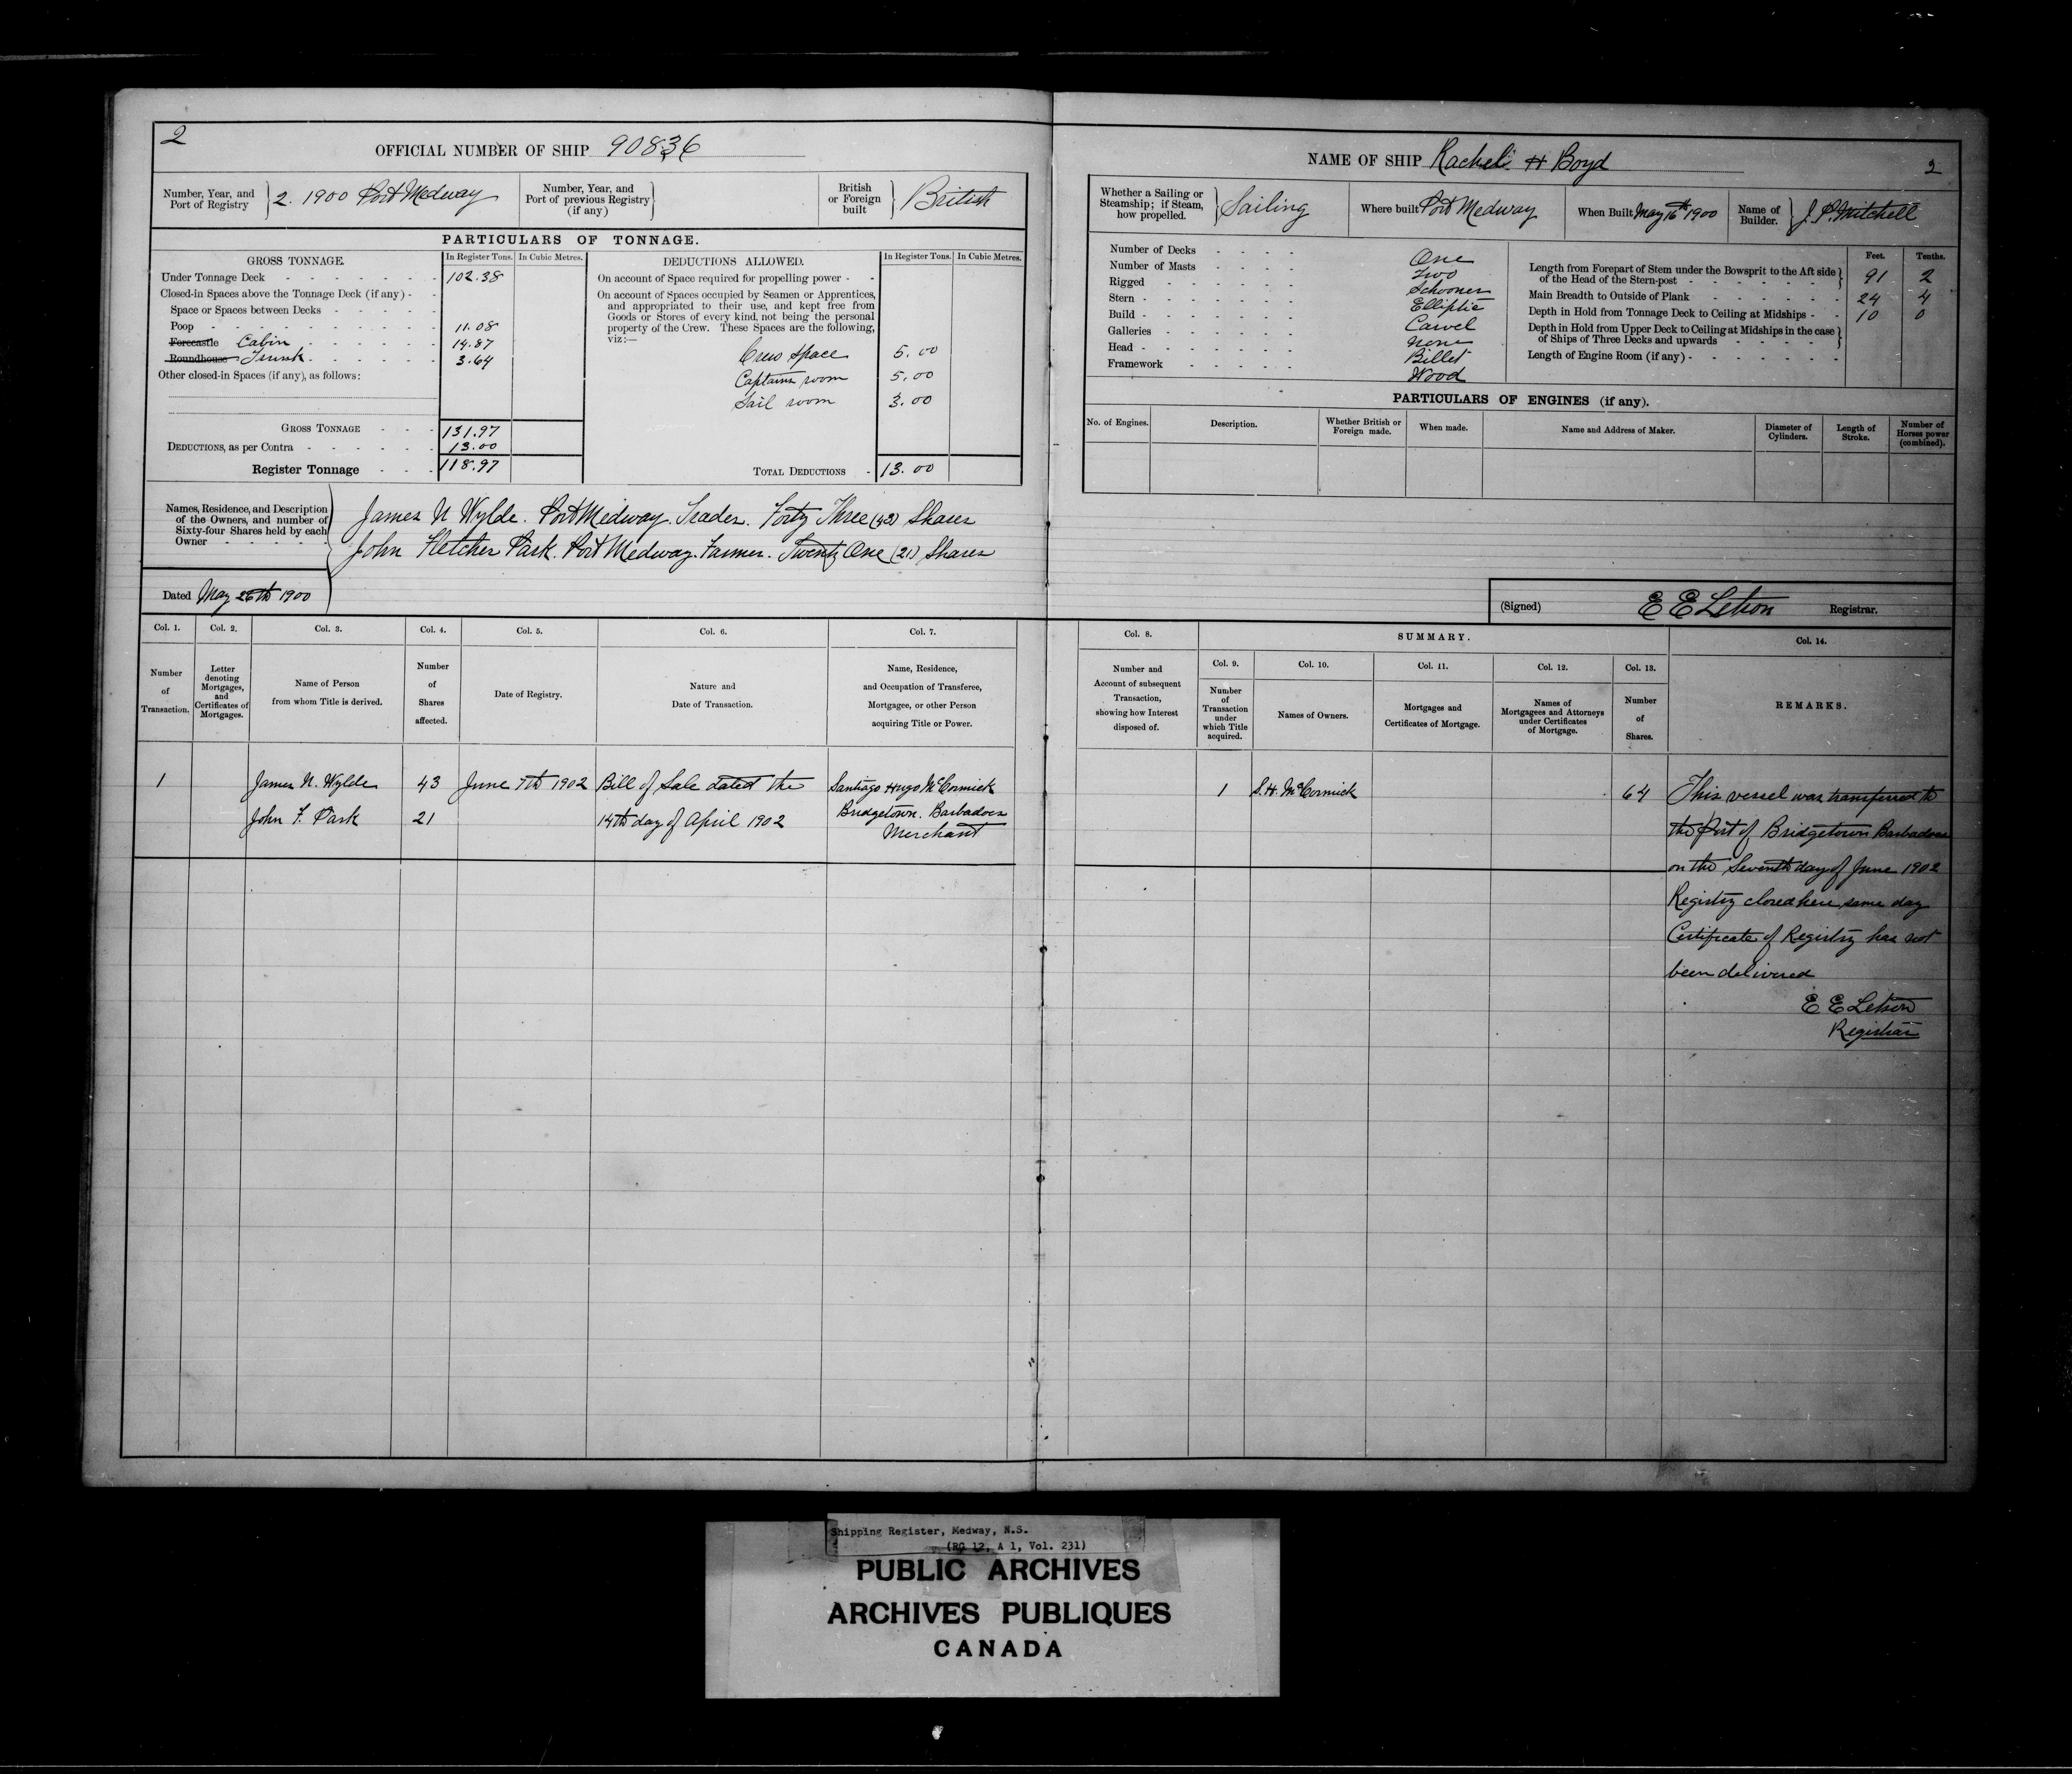 2
OFFICIAL NUMBER OF SHIP 90836
Number, Year, and Port of Registry
2. 1900 Port Medway
Number, Year, and Port of previous Registry (if any)
British or Foreign built
British
PARTICULARS OF TONNAGE.
GROSS TONNAGE. In Register Tons. In Cubic Metres.
Under Tonnage Deck 102.38
Closed-in Spaces above the Tonnage Deck (if any) -
Space or Spaces between Decks
Poop 11.08
Forecastle Cabin 14.87
Roundhouse Trunk 3.64
Other closed-in Spaces (if any), as follows:
GROSS TONNAGE 131.97
DEDUCTIONS, as per Contra 13.00
Register Tonnage 118.97
DEDUCTIONS ALLOWED. In Register Tons. In Cubic Metres.
On account of Space required for propelling power -
On account of Spaces occupied by Seamen or Apprentices,
and appropriated to their use, and kept free from
Goods or Stores of every kind, not being the personal
property of the Crew. These Spaces are the following,
viz:—
Crew space 5.00
Captains room 5.00
Sail room 3.00
TOTAL DEDUCTIONS 13.00
Names, Residence, and Description
of the Owners, and number of
Sixty-four Shares held by each
Owner
James N Wylde. Port Medway. Trader. Forty Three (43) Shares
John Fletcher Park. Port Medway. Farmer. Twenty One (21) Shares
Dated May 26th 1900
NAME OF SHIP Rachel H Boyd
2
Whether a Sailing or Steamship; if Steam, how propelled.
Sailing
Where built Port Medway
When Built May 16th 1900
Name of Builder.
J. P. Mitchell
Number of Decks One
Number of Masts Two
Rigged Schooner
Stern Elliptic
Build Carvel
Galleries None
Head Billet
Framework Wood
Feet. Tenths.
Length from Forepart of Stem under the Bowsprit to the Aft side
of the Head of the Stern-post 91 2
Main Breadth to Outside of Plank 24 4
Depth in Hold from Tonnage Deck to Ceiling at Midships 10 0
Depth in Hold from Upper Deck to Ceiling at Midships in the case
of Ships of Three Decks and upwards
Length of Engine Room (if any)
PARTICULARS OF ENGINES (if any).
No. of Engines. Description. Whether British or Foreign made. When made. Name and Address of Maker. Diameter of Cylinders. Length of Stroke. Number of Horses power (combined).
(Signed) E E Letson Registrar.
Col. 1. Col. 2. Col. 3. Col. 4. Col. 5. Col. 6. Col. 7.
Number of Transaction.
Letter denoting Mortgages, and Certificates of Mortgages.
Name of Person from whom Title is derived.
Number of Shares affected.
Date of Registry.
Nature and Date of Transaction.
Name, Residence, and Occupation of Transferee, Mortgagee, or other Person acquiring Title or Power.
1 James N. Wylde 43 June 7th 1902 Bill of Sale dated the Santiago Hugo McCormick
John F. Park 21 14th day of April 1902 Bridgetown. Barbadoes
Merchant
Col. 8. SUMMARY. Col. 14.
Col. 9. Col. 10. Col. 11. Col. 12. Col. 13.
Number and Account of subsequent Transaction, showing how Interest disposed of.
Number of Transaction under which Title acquired.
Names of Owners.
Mortgages and Certificates of Mortgage.
Names of Mortgagees and Attorneys under Certificates of Mortgage.
Number of Shares.
REMARKS.
1 S. H. McCormick 64
This vessel was transferred to
the Port of Bridgetown Barbadoes
on the Seventh day of June 1902
Registry closed here same day
Certificate of Registry has not
been delivered
E E Letson
Registrar
Shipping Register, Medway, N.S.
(RG 12, A 1, Vol. 231)
PUBLIC ARCHIVES
ARCHIVES PUBLIQUES
CANADA